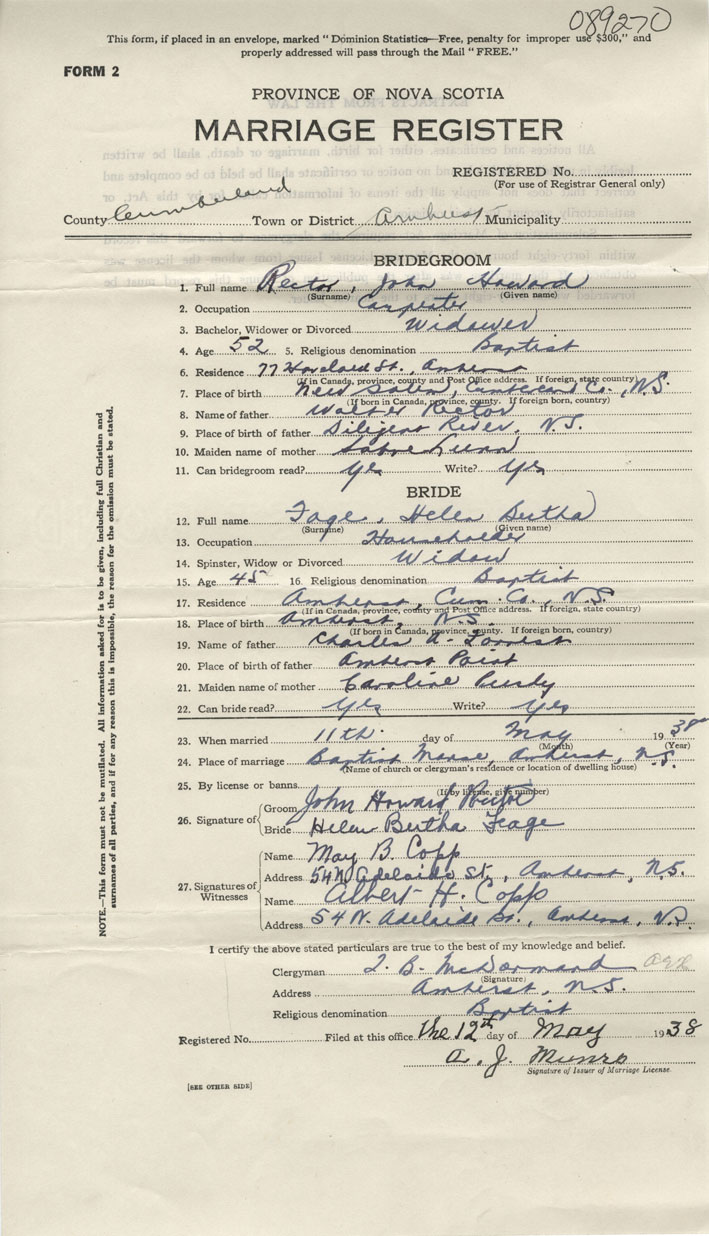 089270
This form, if placed in an envelope, marked "Dominion Statistics—Free, penalty for improper use $300," and
properly addressed will pass through the Mail "FREE."
FORM 2
PROVINCE OF NOVA SCOTIA
MARRIAGE REGISTER
REGISTERED No.
(For use of Registrar General only)
County Cumberland Town or District Amherst Municipality
BRIDEGROOM
1. Full name Rector, John Howard
(Surname) (Given name)
2. Occupation Carpenter
3. Bachelor, Widower or Divorced Widower
4. Age 52 5. Religious denomination Baptist
6. Residence 77 St., Amherst
(If in Canada, province, county and Post Office address. If foreign, state country)
7. Place of birth New Salem, Co., N.S.
(If born in Canada, province, county. If foreign born, country)
8. Name of father Walter Rector
9. Place of birth of father Diligent River, N.S.
10. Maiden name of mother
11. Can bridegroom read? Yes Write? Yes
BRIDE
12. Full name Fage, Helen Bertha
(Surname) (Given name)
13. Occupation Householder
14. Spinster, Widow or Divorced Widow
15. Age 45 16. Religious denomination Baptist
17. Residence Amherst, Cum. Co., N.S.
(If in Canada, province, county and Post Office address. If foreign, state country)
18. Place of birth Amherst, N.S.
(If born in Canada, province, county. If foreign born, country)
19. Name of father Charles A. Forrest
20. Place of birth of father Amherst Point
21. Maiden name of mother Caroline
22. Can bride read? Yes Write? Yes
23. When married 11th. day of May 1938
(Month) (Year)
24. Place of marriage Baptist Manse, Amherst, N.S.
(Name of church or clergyman's residence or location of dwelling house)
25. By license or banns
(If by license, give number)
26. Signature of Groom John Howard Rector
Bride Helen Bertha Feage
27. Signatures of Witnesses
Name May B. Copp
Address 54 N. Adelaide St., Amherst, N.S.
Name Albert H. Copp
Address 54 N. Adelaide St., Amherst, N.S.
I certify the above stated particulars are true to the best of my knowledge and belief.
Clergyman B. McDormand
(Signature)
Address Amherst, N.S.
Religious denomination Baptist
Registered No. Filed at this office the 12th day of May 1938
A. J. Munro
Signature of Issuer of Marriage License.
[SEE OTHER SIDE]
NOTE.—This form must not be mutilated. All information asked for is to be given, including full Christian and
surnames of all parties, and if for any reason this is impossible, the reason for the omission must be stated.